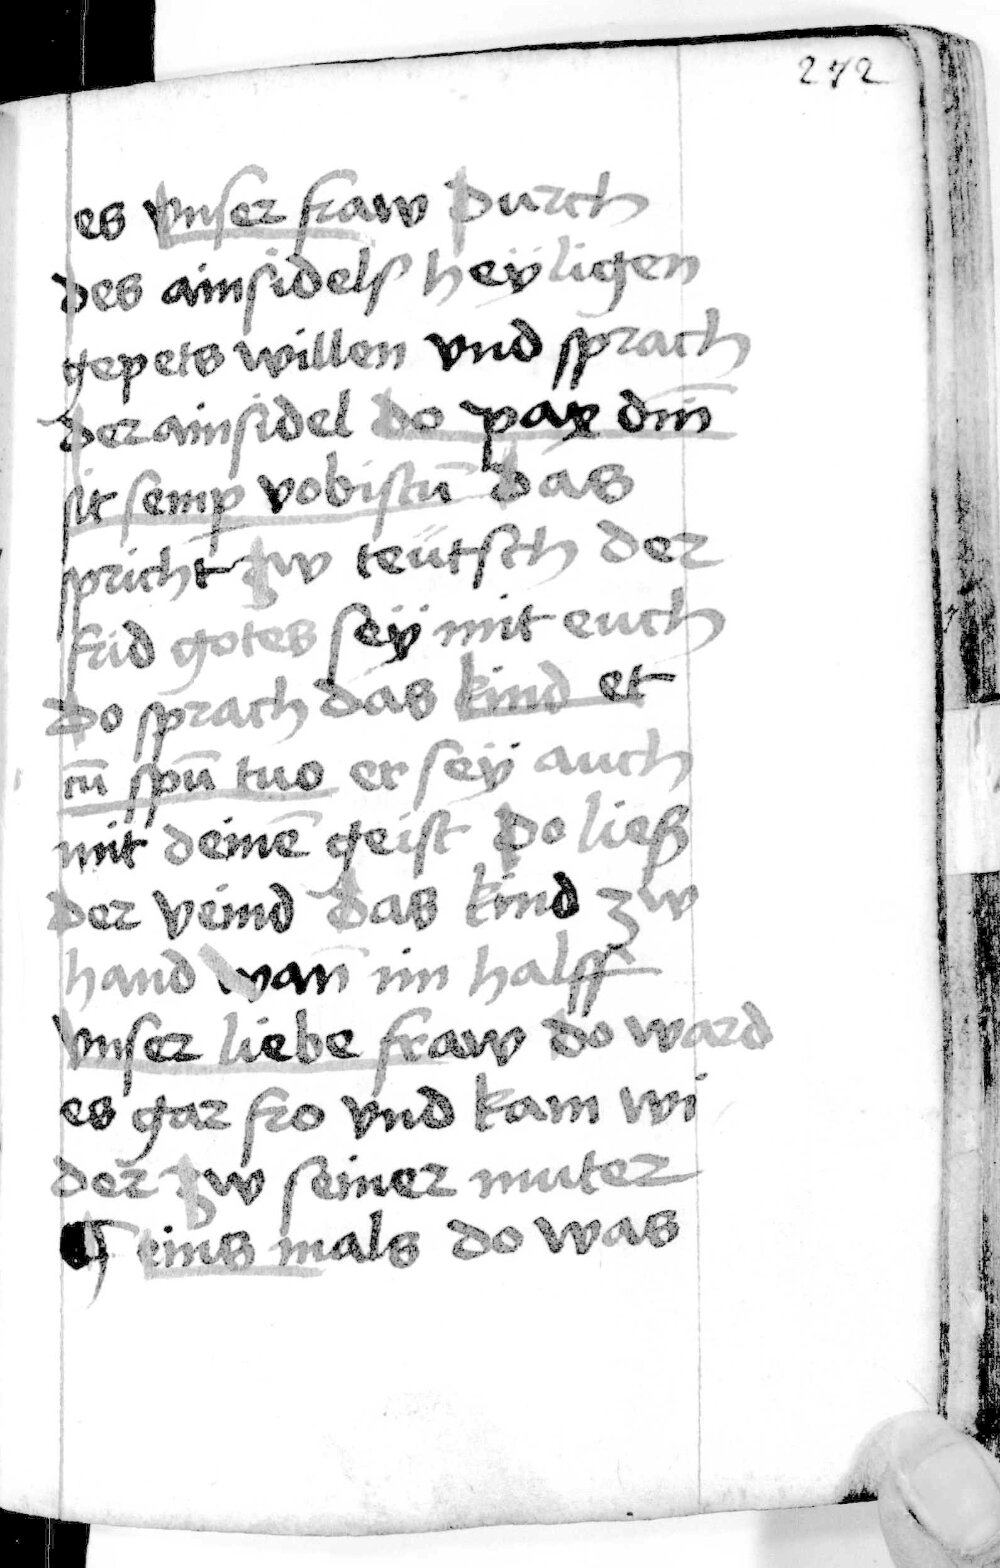 272
es vnser fraw Durch
des ainsidels heÿligen
gepets willen vnd sprach
Der ainsidel do pax dm̄
sit semp vobiscū das
spricht zw teütsch der
frid gotes seÿ mit euch
Do sprach das kind et
cū spū tuo er seÿ auch
mit deinē geist Do ließ
der veind das kind zw
hand wan̄ im halff
Vnser liebe fraw do ward
es gar fro vnd kam wi
der zw seiner muter
¶ eins mals do was